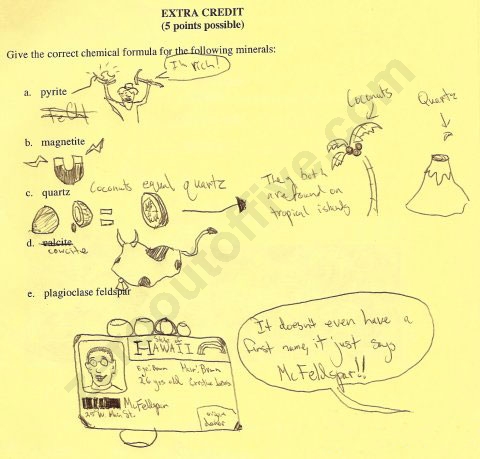 EXTRA CREDIT
(5 points possible)
Give the correct chemical formula for the following minerals:
I'm rich!
a. pyrite
b. magnetite
Coconuts
Quartz
c. quartz
Coconuts equal quartz
They both
are found on
tropical islands
d. calcite
cowcite
e. plagioclase feldspar
State of
HAWAII
Eye: Brown Hair: Brown
26 yrs old
McFeldspar
organ
donor
It doesn't even have a
first name, it just says
McFeldspar!!